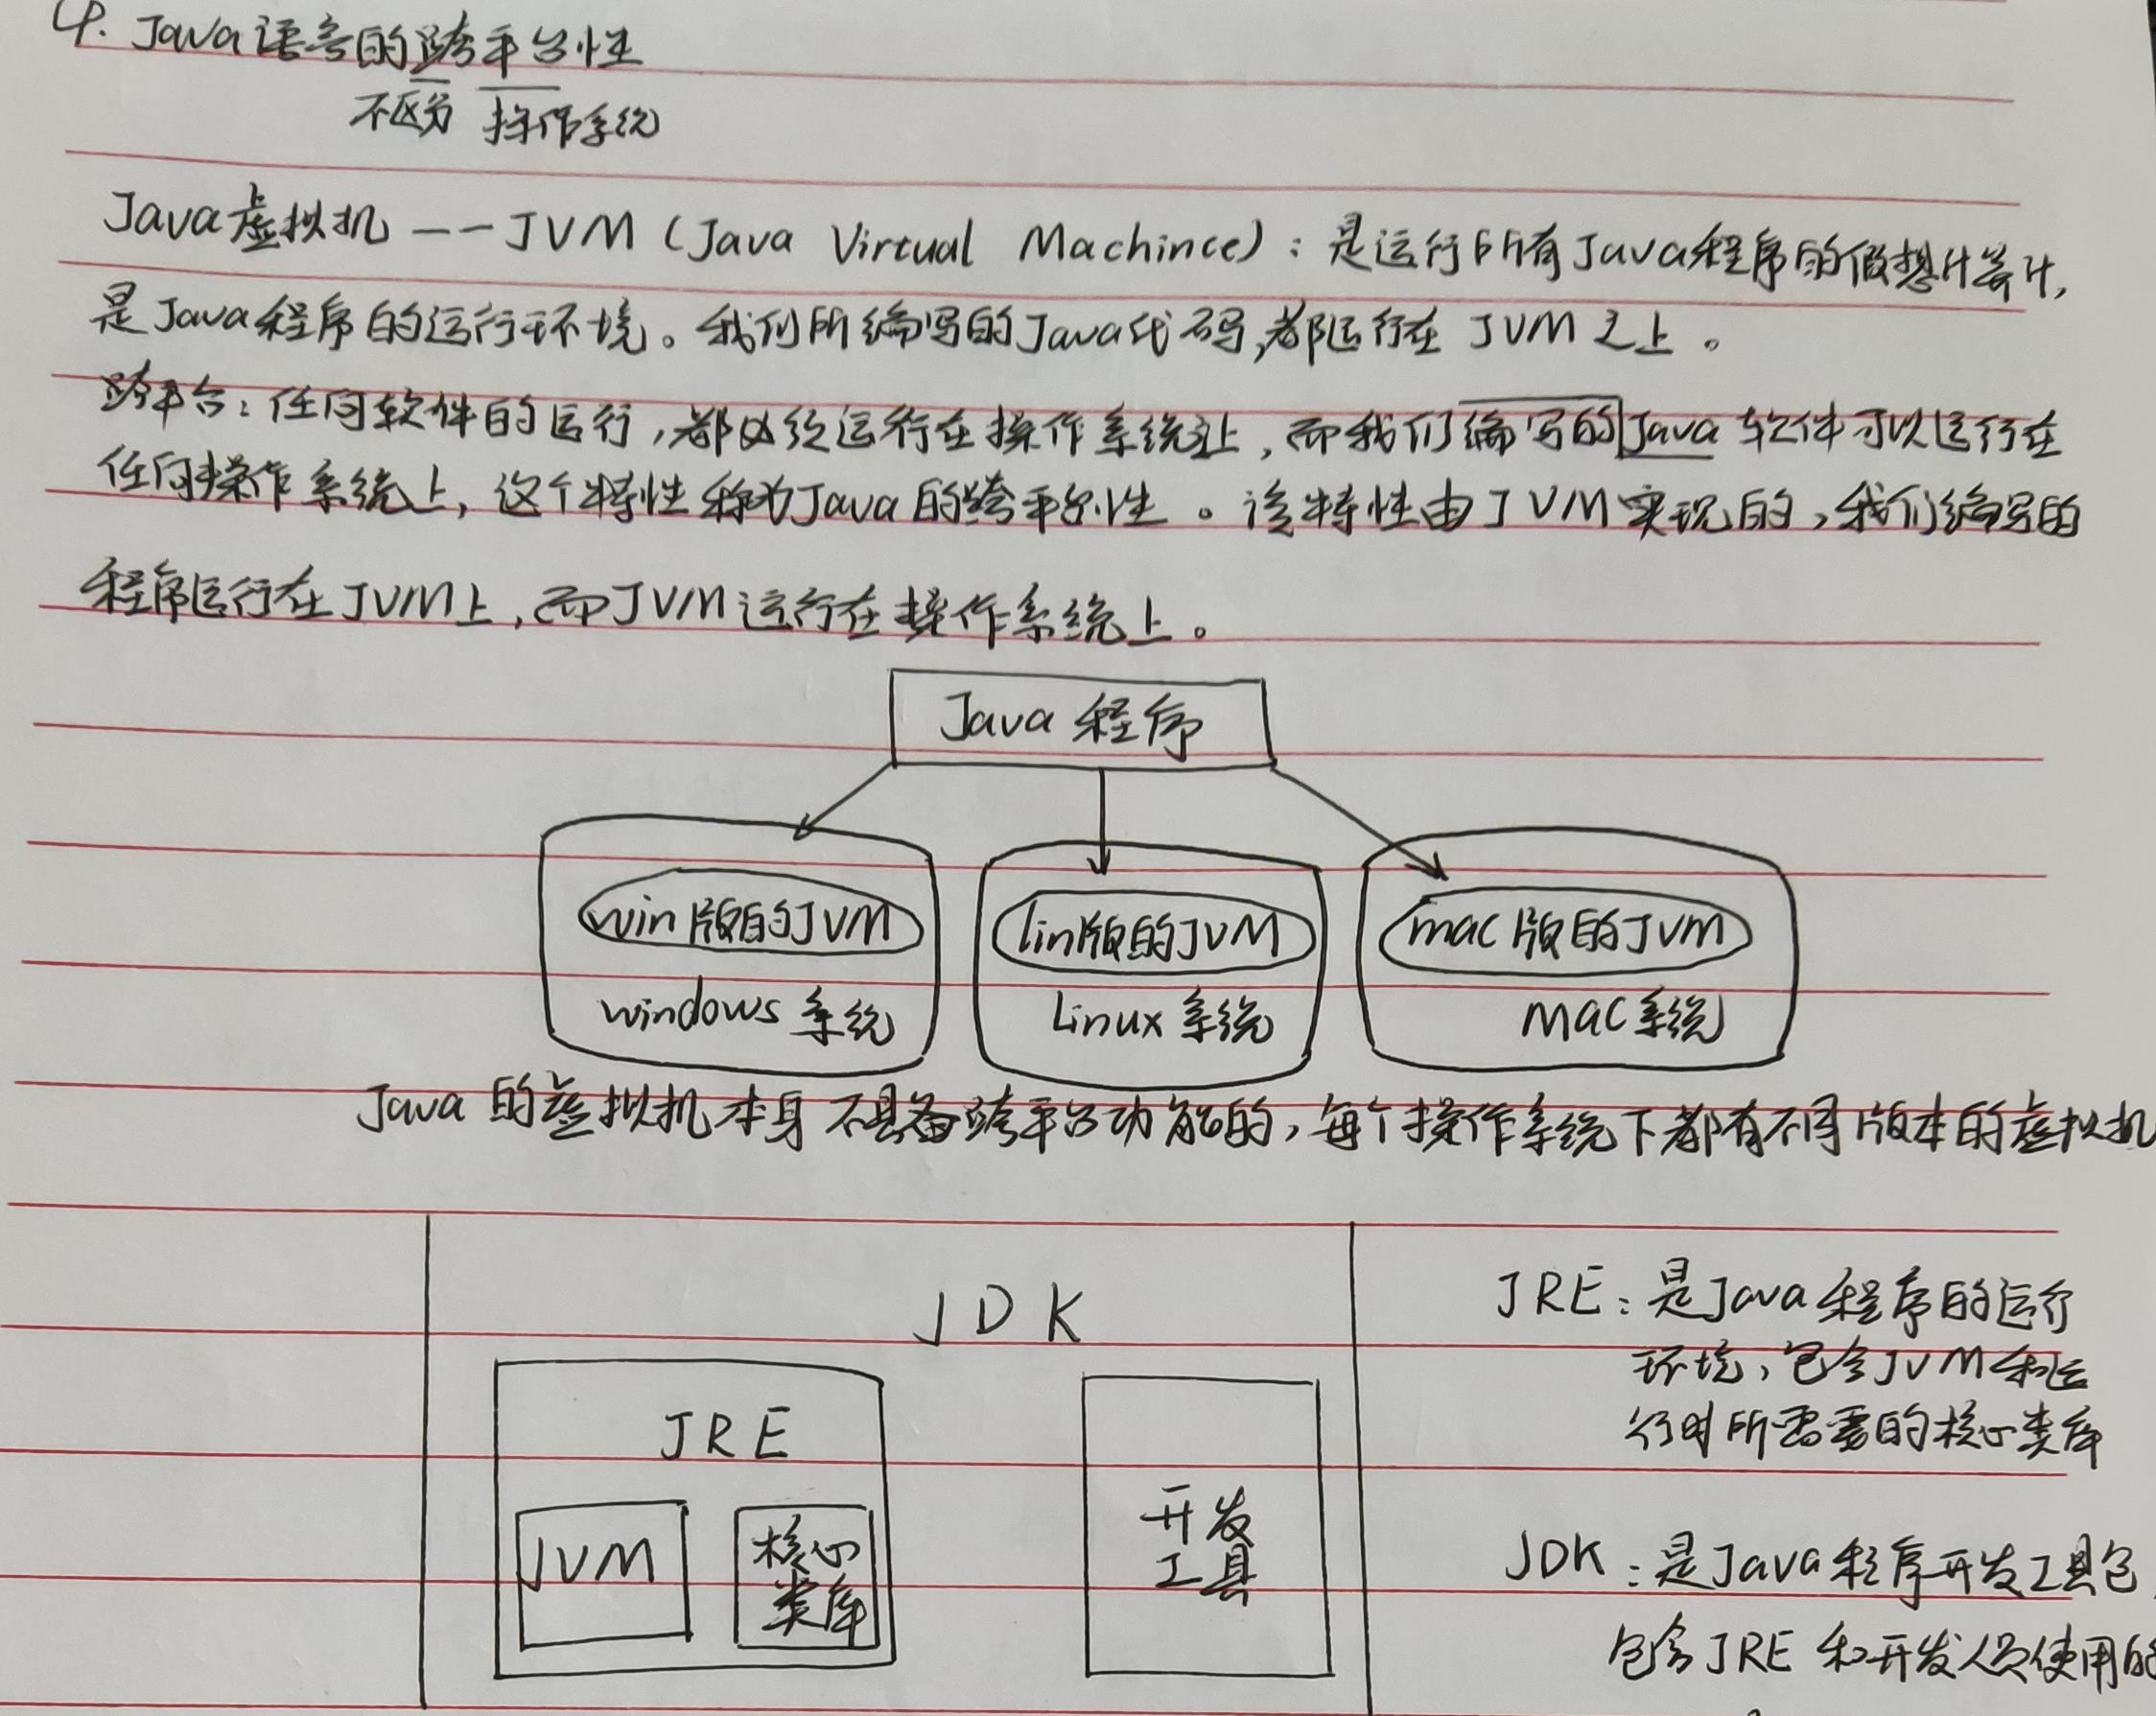 4. Java语言的跨平台性
不区分 操作系统
Java虚拟机 ——JVM (Java Virtual Machince)：是运行所有Java程序的假想计算计,
是Java程序的运行环境。我们所编写的Java代码,都运行在 JVM 之上。
跨平台：任何软件的运行,都必须运行在操作系统之上,而我们编写的Java 软件可以运行在
任何操作系统上,这个特性称为Java的跨平台性。该特性由JVM实现的,我们编写的
程序运行在JVM上,而JVM运行在操作系统上。
Java 程序
win版的JVM
lin版的JVM
mac版的JVM
windows 系统
Linux 系统
mac系统
Java 的虚拟机本身不具备跨平台功能的,每个操作系统下都有不同版本的虚拟机
JDK
JRE
JVM
核心
类库
开发
工具
JRE：是Java程序的运行
环境,包含JVM和运
行时所需要的核心类库
JDK：是Java程序开发工具包
包含JRE 和开发人员使用的